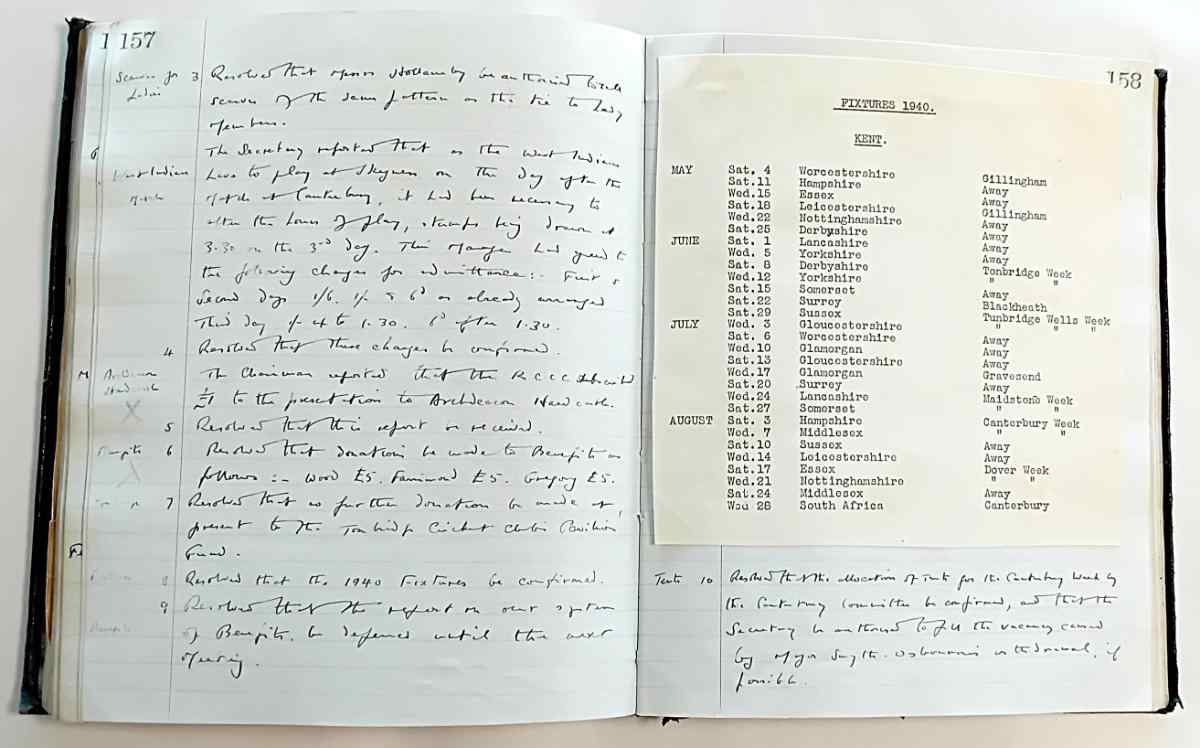 1 157
Scarves for 3 Resolved that Messrs be authorised to sell
Ladies scarves of the same pattern as the tie to Lady
Members.
The Secretary reported that as the West Indians
West Indian have to play at Skegness on the day after the
Match match at Canterbury, it had been necessary to
alter the hours of play, stumps being drawn at
3.30 on the 3rd day. The Manager had agreed to
the following charges for admittance:- First &
Second Days 1/6. 1/- & 6d as already arranged
Third day 1/- up to 1.30. 6d after 1.30.
4 Resolved that these charges be confirmed.
Archdeacon The Chairman reported that the K C C C subscribed
Hardcastle £1 to the presentation to Archdeacon Hardcastle.
5 Resolved that this report be received.
Benefits 6 Resolved that donations be made to Benefits as
follows :- Wood £5. Farrimond £5. Gregory £5.
" " 7 Resolved that no further donation be made at
present to the Tonbridge Cricket Club's Pavilion
Fund.
8 Resolved that the 1940 Fixtures be confirmed.
9 Resolved that the report on our system
Benefits of Benefits be deferred until the next
Meeting.
158
FIXTURES 1940.
KENT.
MAY Sat. 4 Worcestershire Gillingham
Sat.11 Hampshire Away
Wed.15 Essex Away
Sat.18 Leicestershire Gillingham
Wed.22 Nottinghamshire Away
Sat.25 Derbyshire Away
JUNE Sat. 1 Lancashire Away
Wed. 5 Yorkshire Away
Sat. 8 Derbyshire Tonbridge Week
Wed.12 Yorkshire " "
Sat.15 Somerset Away
Sat.22 Surrey Blackheath
Sat.29 Sussex Tunbridge Wells Week
JULY Wed. 3 Gloucestershire " " "
Sat. 6 Worcestershire Away
Wed.10 Glamorgan Away
Sat.13 Gloucestershire Away
Wed.17 Glamorgan Gravesend
Sat.20 Surrey Away
Wed.24 Lancashire Maidstone Week
Sat.27 Somerset " "
AUGUST Sat. 3 Hampshire Canterbury Week
Wed. 7 Middlesex " "
Sat.10 Sussex Away
Wed.14 Leicestershire Away
Sat.17 Essex Dover Week
Wed.21 Nottinghamshire " "
Sat.24 Middlesex Away
Wed 28 South Africa Canterbury
Tents 10 Resolved that the allocation of Tents for the Canterbury Week by
the Canterbury Committee be confirmed, and that the
Secretary be authorised to fill the vacancy caused
by Major Smyth-Osbourne's withdrawal, if
possible.